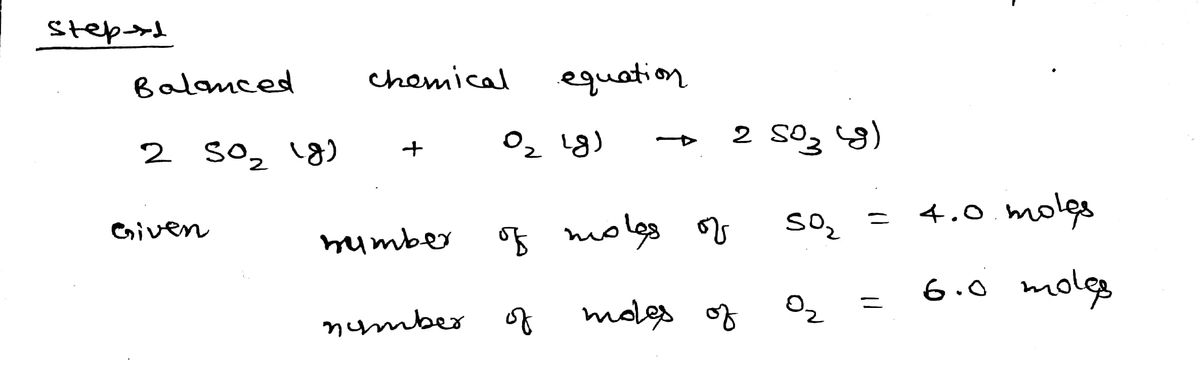 Step→1
Balanced chemical equation
2 SO₂ (g) + O₂ (g) → 2 SO₃ (g)
Given number of moles of SO₂ = 4.0 moles
number of moles of O₂ = 6.0 moles